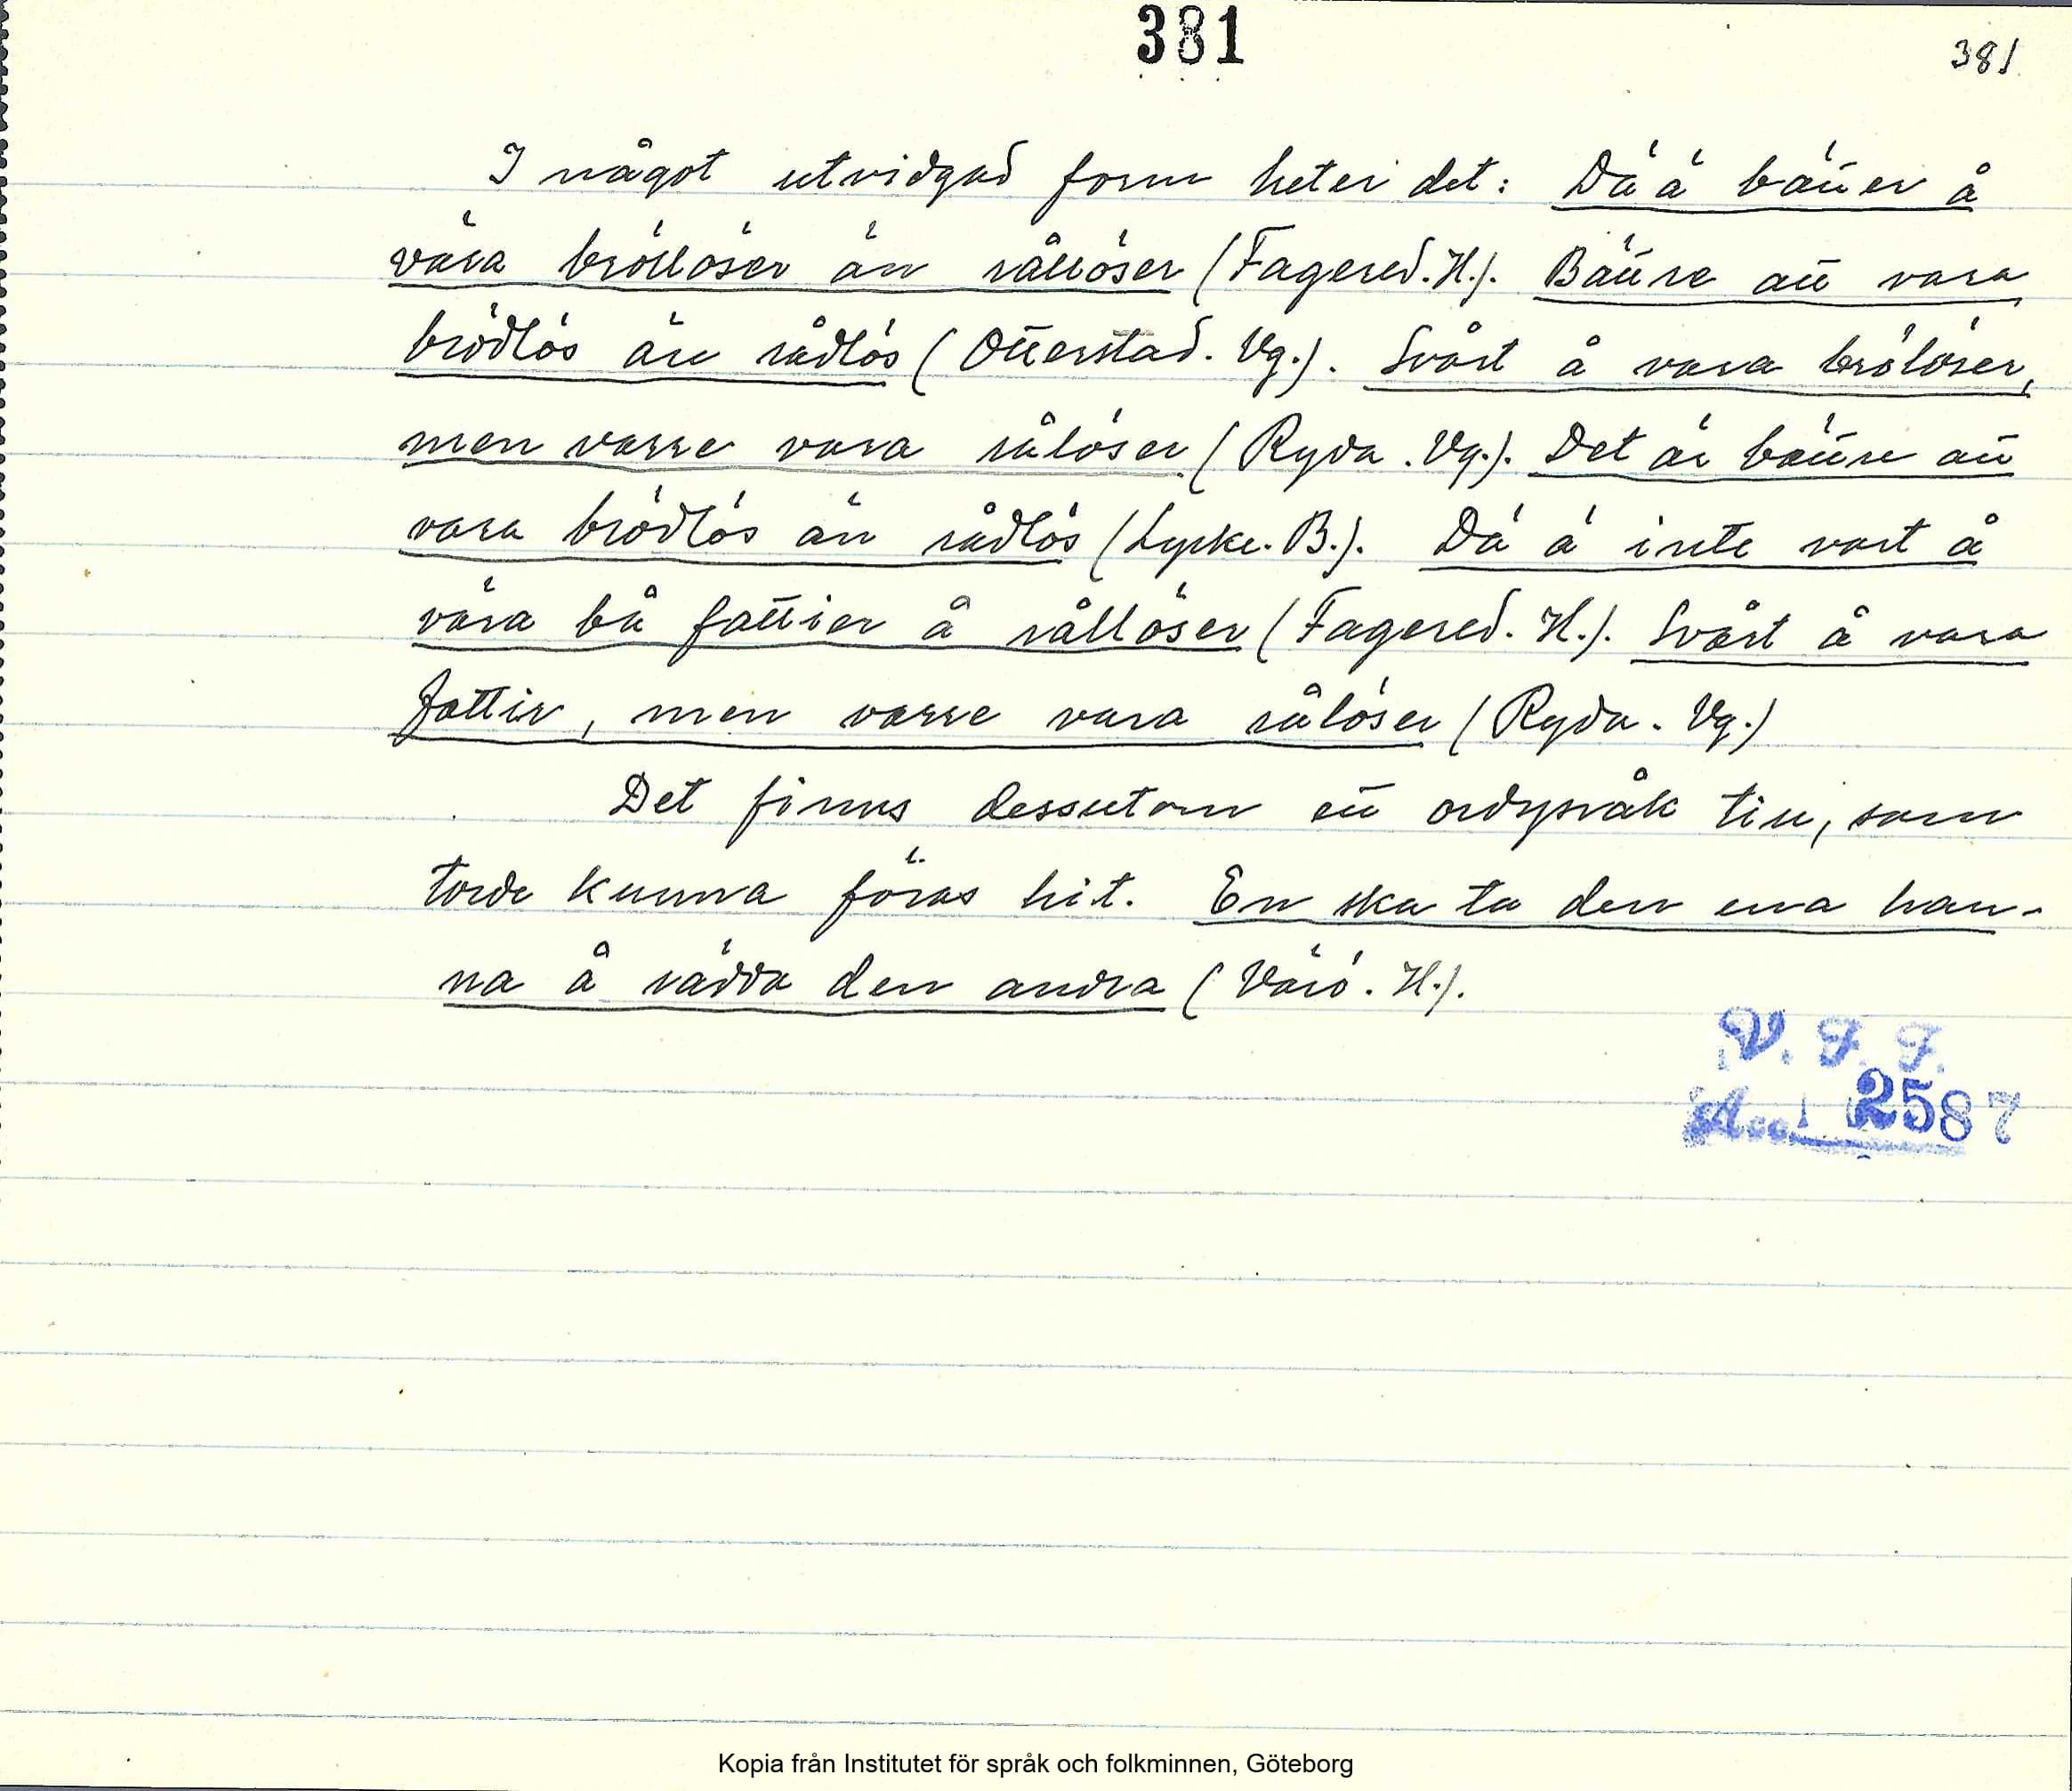 381
381
I något utvidgad form heter det: Dä ä bätter å
våra bröllöser än rållöser (Fagered. H.). Bättre att vara
brödlös än rådlös (Otterstad. Vg.). Svårt å vara brölöser,
men varre vara rålöser (Ryda. Vg.). Det är bättre att
vara brödlös än rådlös (Lycke. B.). Dä ä inte vart å
våra bå fattier å rållöser (Fagered. H.). Svårt å vara
fattir, men varre vara rålöser (Ryda. Vg.)
Det finns dessutom ett ordspråk till, som
torde kunna föras hit. En ska ta den ena han-
na å rädda den andra (Värö. H.).
V. F. F.
Acc. 2587
Kopia från Institutet för språk och folkminnen, Göteborg